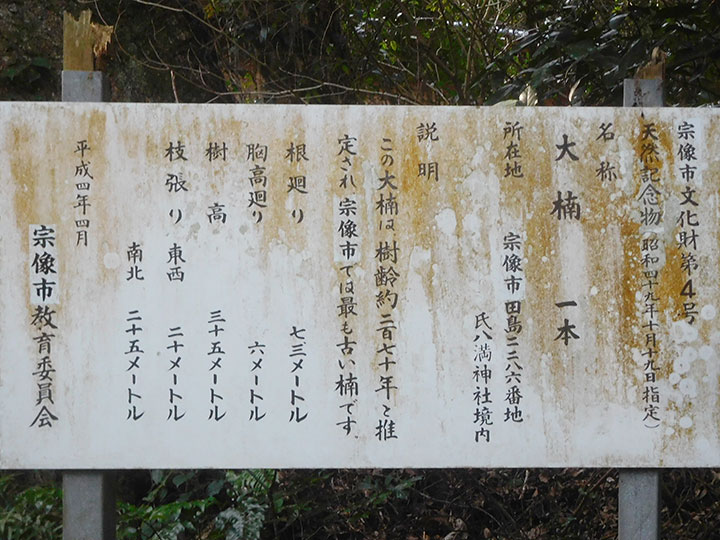 宗像市文化財第4号
天然記念物(昭和四十九年十月十九日指定)
名称
大楠 一本
所在地 宗像市田島二二八六番地
氏八満神社境内
説明
この大楠は樹齢約二百七十年と推
定され宗像市では最も古い楠です
根廻り 七三メートル
胸高廻り 六メートル
樹高 三十五メートル
枝張り 東西 二十メートル
南北 二十五メートル
平成四年四月
宗像市教育委員会